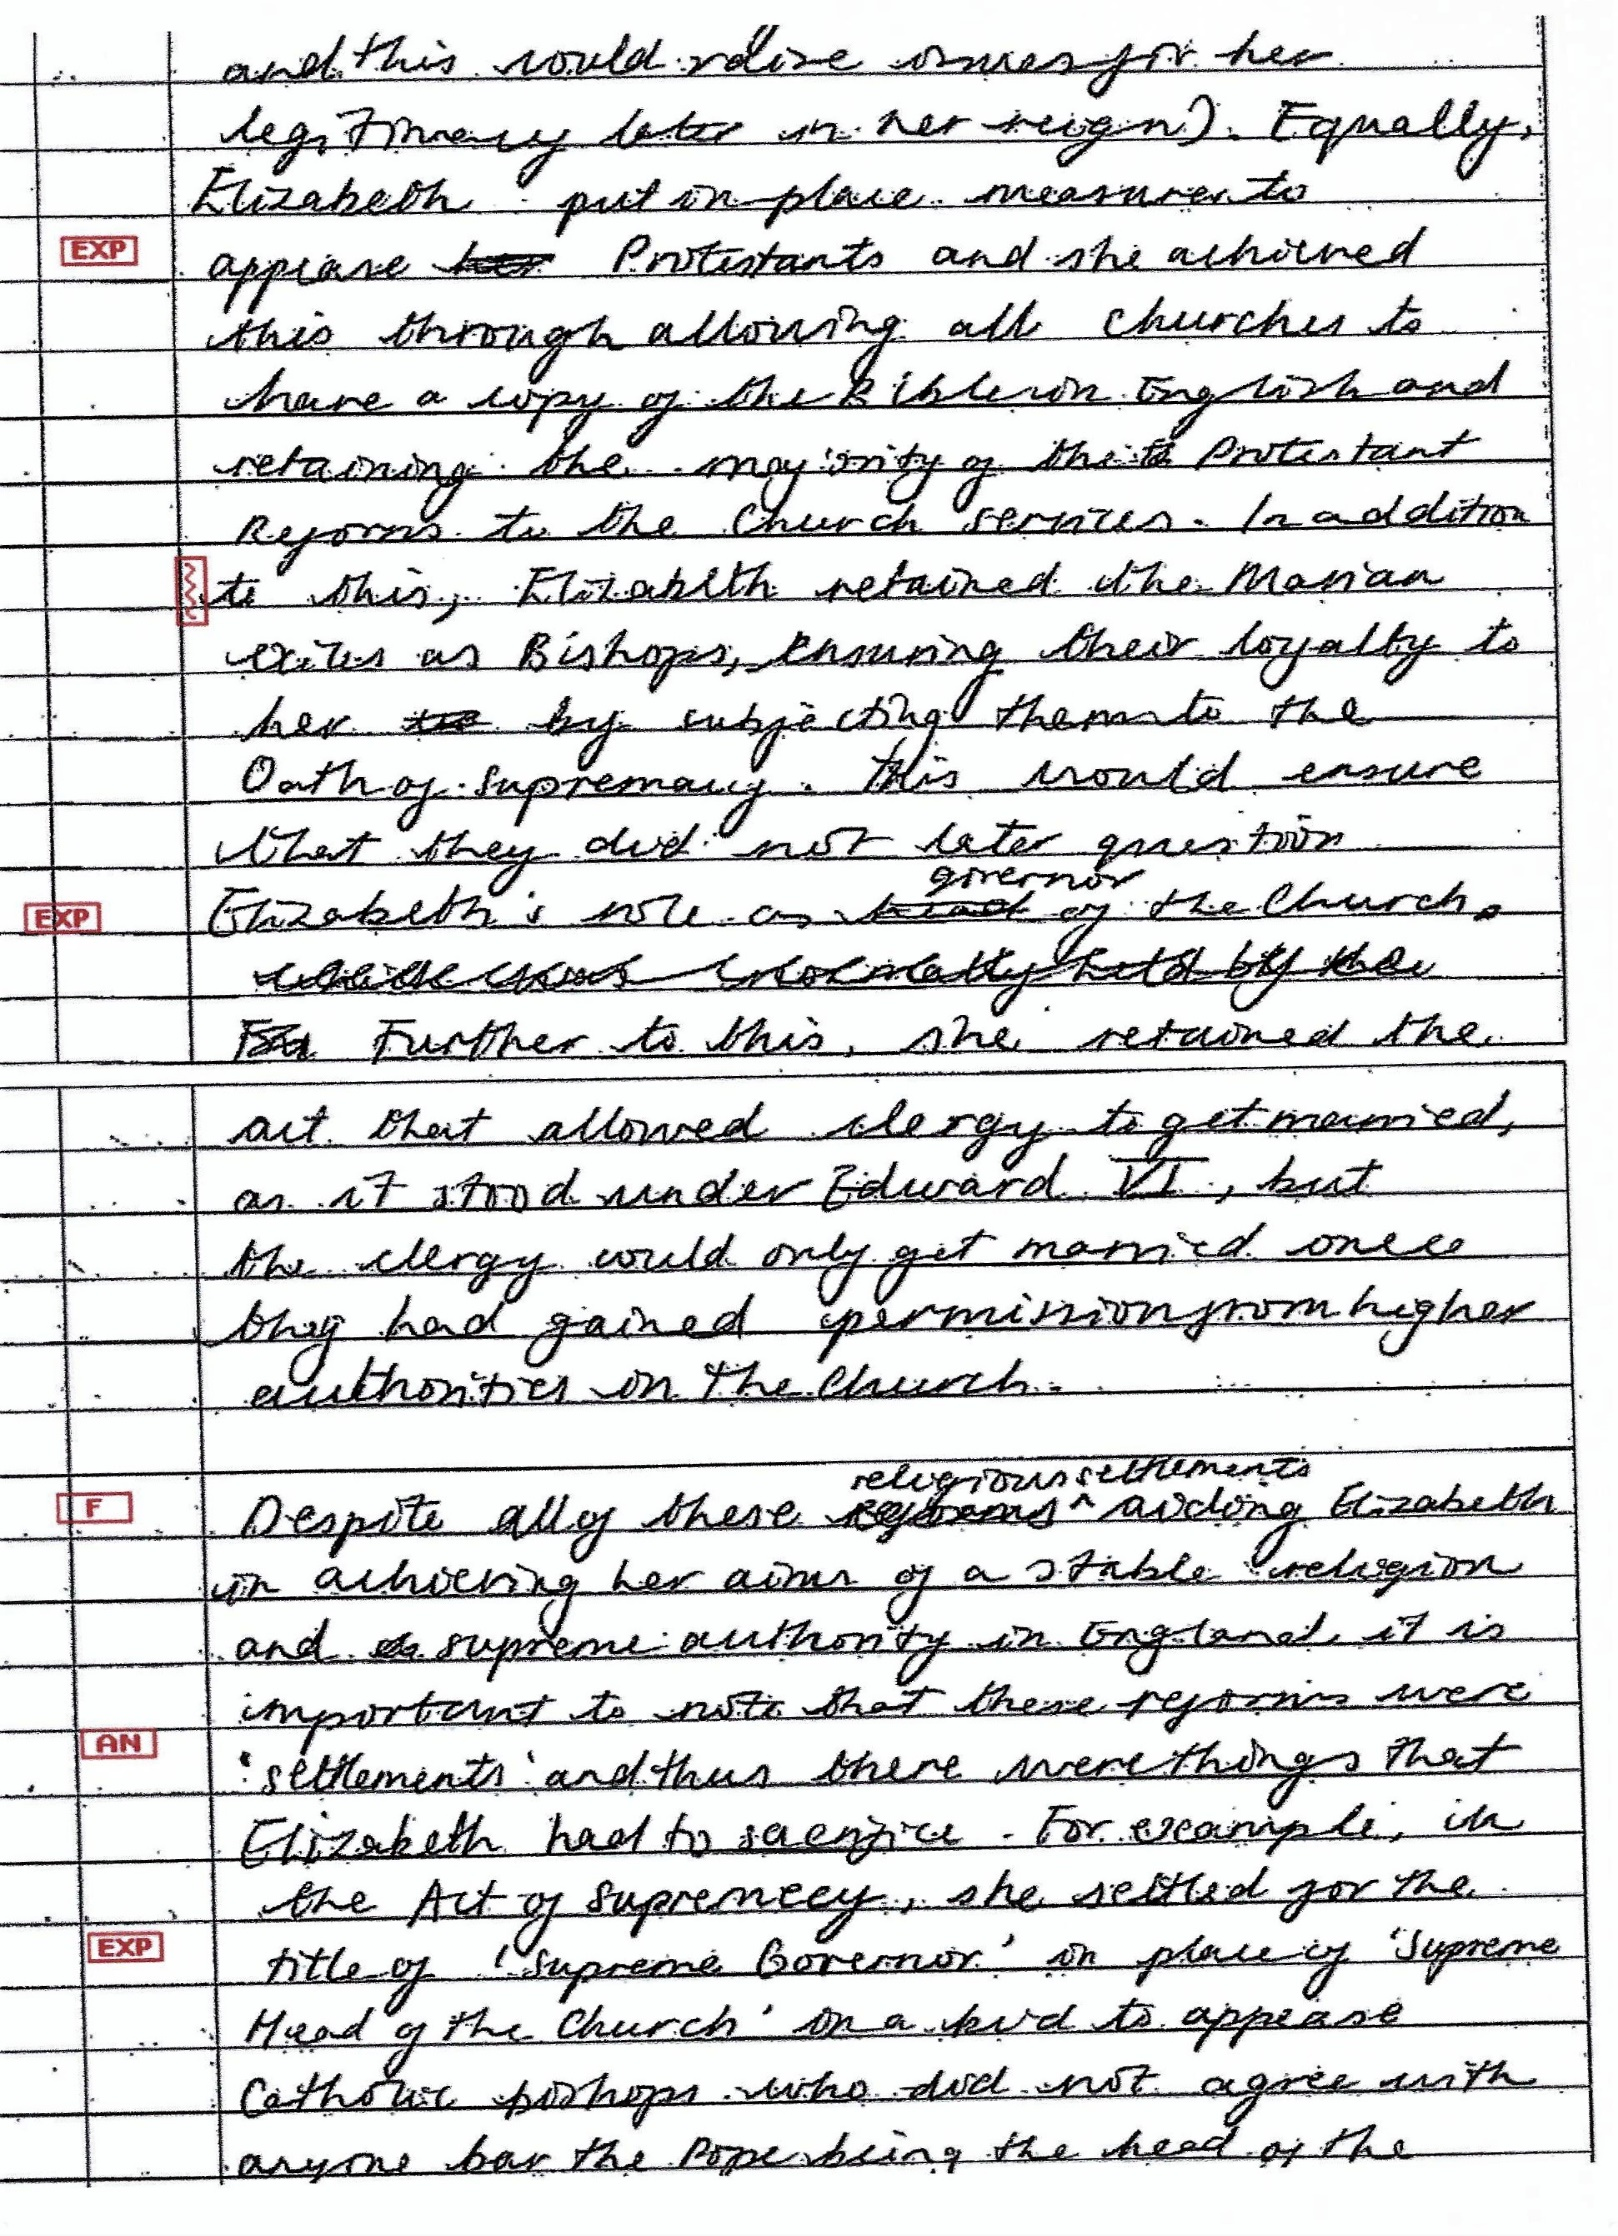 and this would raise issues for her
legitimacy later in her reign). Equally,
Elizabeth put in place measures to
EXP appease her Protestants and she achieved
this through allowing all churches to
have a copy of the Bible in English and
retaining the majority of the Protestant
Reforms to the Church services. In addition
to this, Elizabeth retained the Marian
exiles as Bishops, ensuring their loyalty to
her by subjecting them to the
Oath of Supremacy. This would ensure
that they did not later question
governor
EXP Elizabeth's role as head of the Church.
held by the
Further to this, she retained the
act that allowed clergy to get married,
as it stood under Edward VI, but
the clergy could only get married once
they had gained permission from higher
authorities in the Church.
religious settlements
F Despite all of these reforms ^ aiding Elizabeth
in achieving her aims of a stable religion
and supreme authority in England, it is
important to note that these reforms were
AN 'settlements' and thus there were things that
Elizabeth had to sacrifice. For example, in
the Act of Supremecy, she settled for the
EXP title of 'Supreme Governor' in place of 'Supreme
Head of the Church' in a bid to appease
Catholic bishops who did not agree with
anyone bar the Pope being the head of the